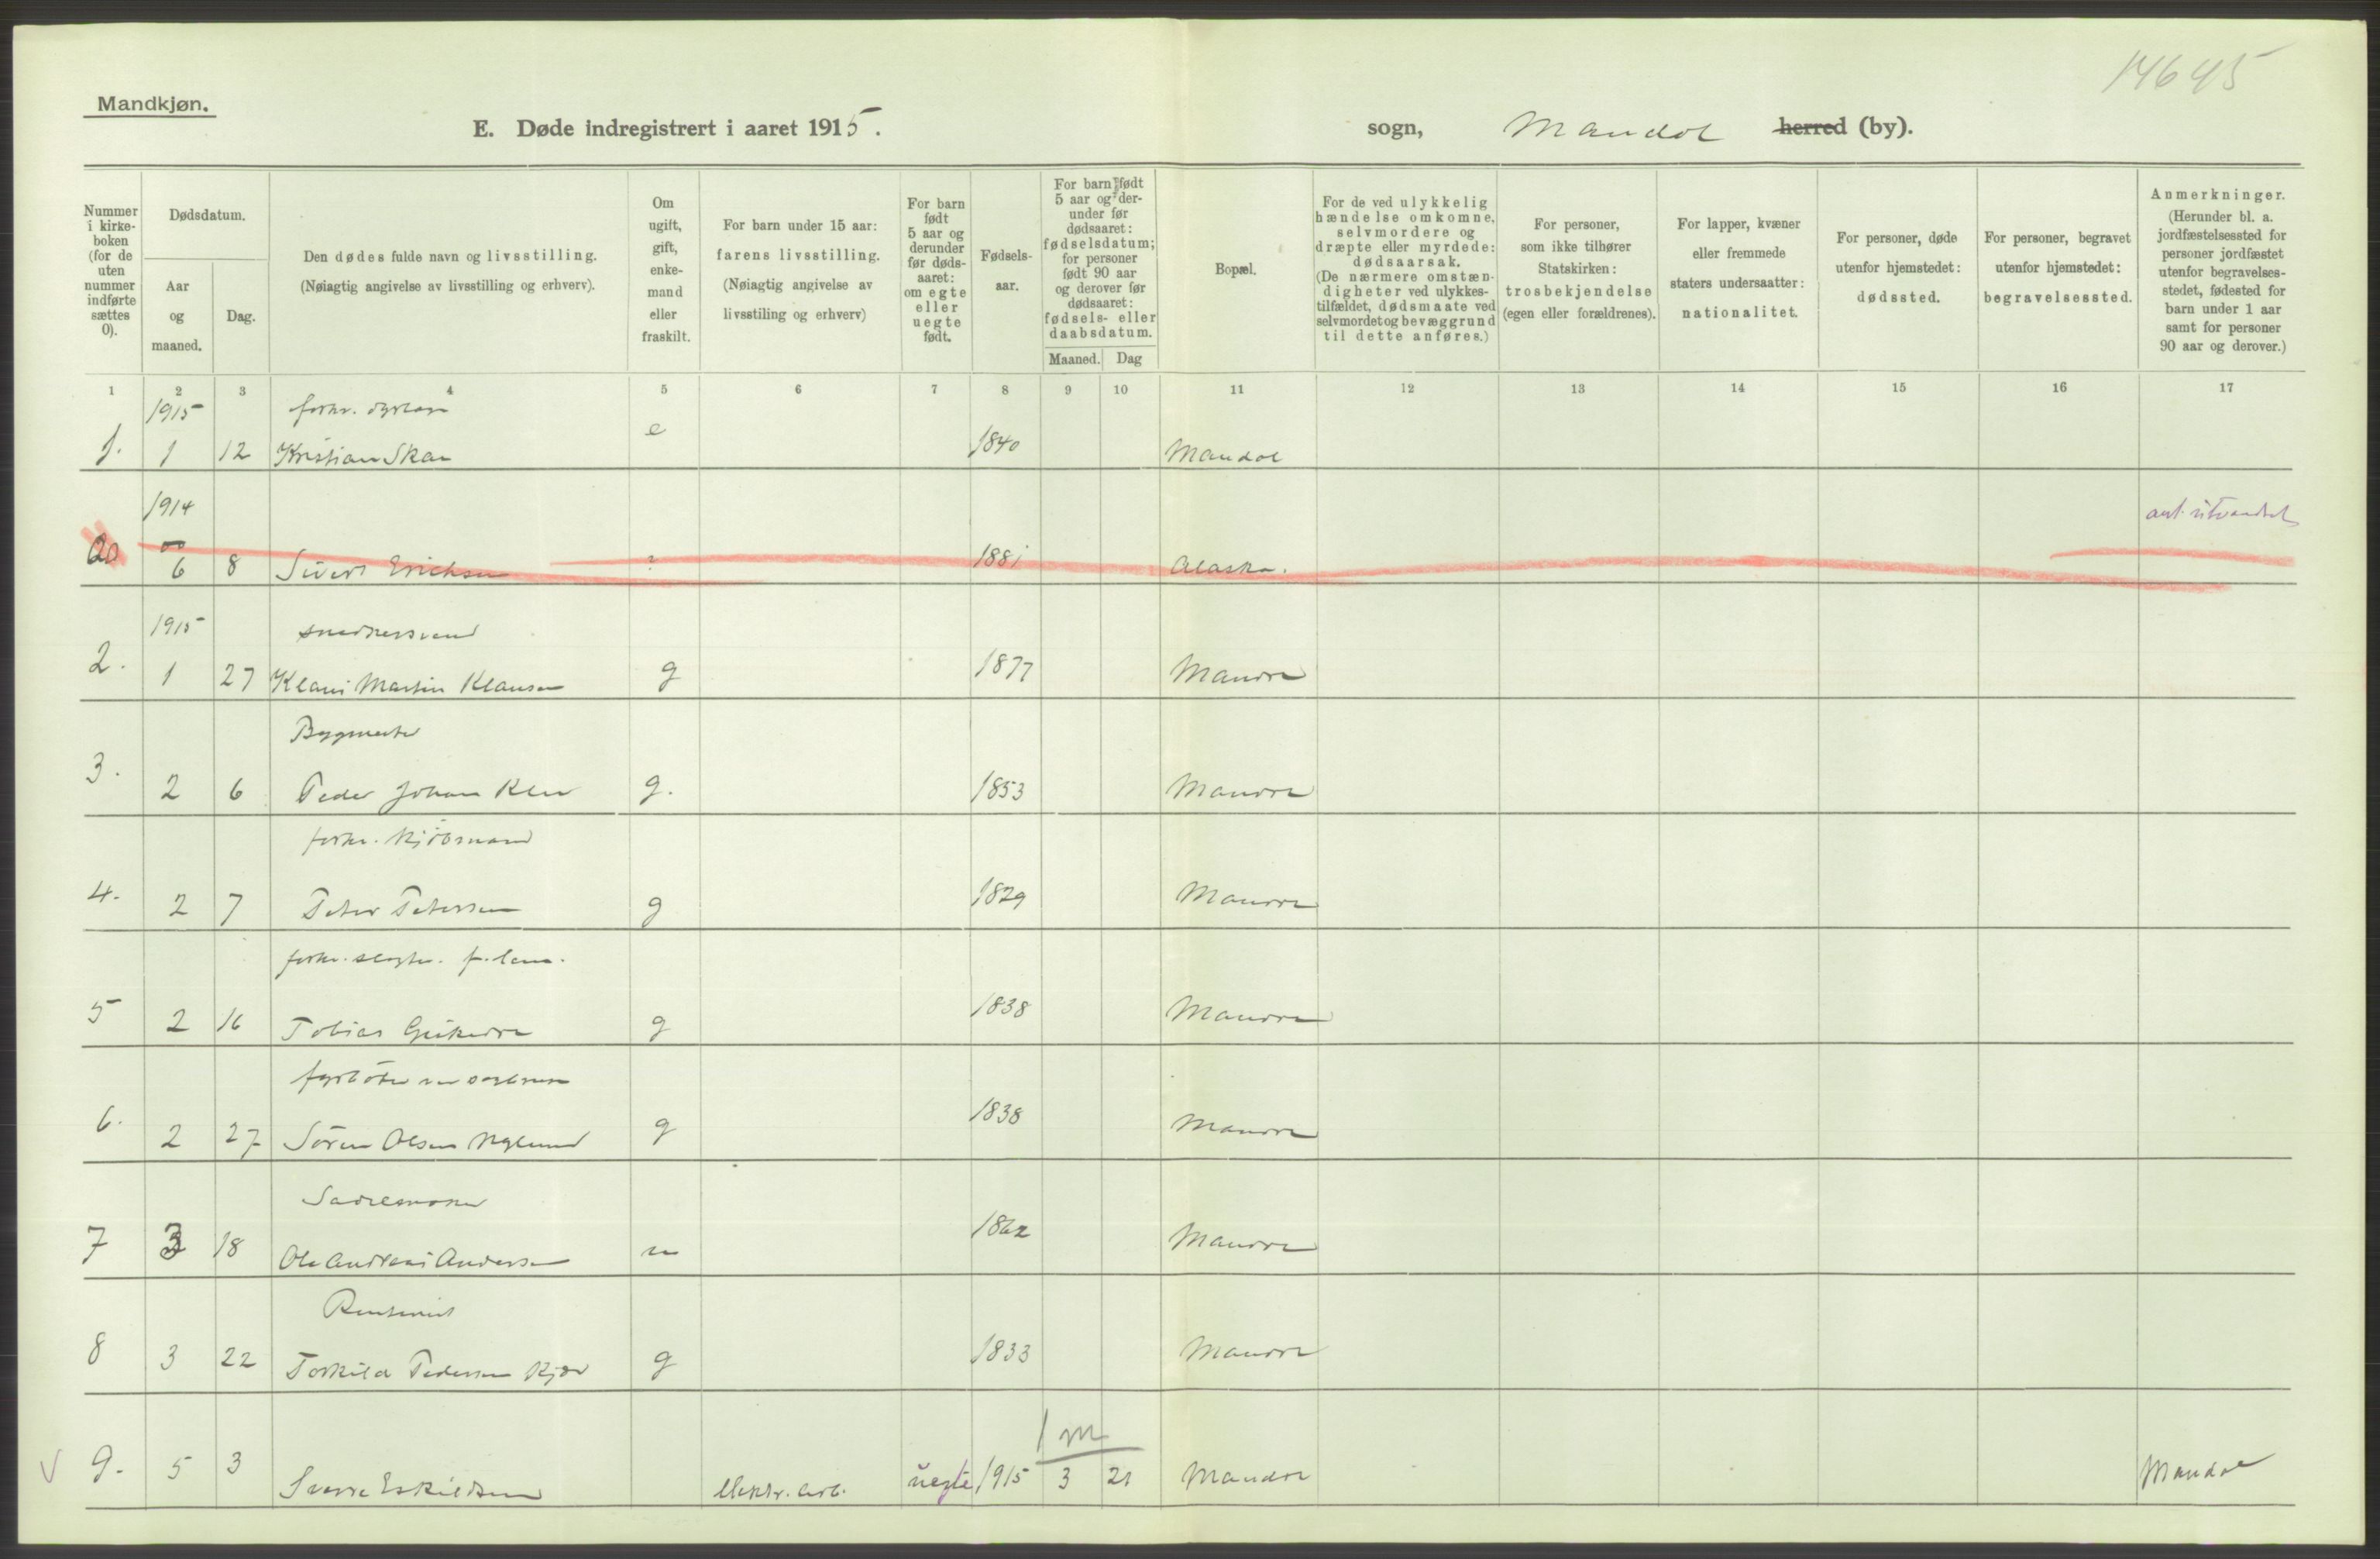 14645
Mandkjøn.
E. Døde indregistrert i aaret 1915.
sogn, Mandal herred (by).
Nummer i kirkeboken (for de uten nummer indførte sættes 0).
Dødsdatum.
Aar og maaned.
Dag.
Den dødes fulde navn og livsstilling.
(Nøiagtig angivelse av livsstilling og erhverv).
Om ugift, gift, enkemand eller fraskilt.
For barn under 15 aar:
farens livsstilling.
(Nøiagtig angivelse av
livsstiling og erhverv)
For barn født 5 aar og derunder før dødsaaret: om egte eller uegte født.
Fødselsaar.
For barn født 5 aar og derunder før dødsaaret: fødselsdatum; for personer født 90 aar og derover før dødsaaret: fødsels- eller daabsdatum.
Maaned. Dag
Bopæl.
For de ved ulykkelig hændelse omkomne, selvmordere og dræpte eller myrdede: dødsaarsak.
(De nærmere omstændigheter ved ulykkestilfældet, dødsmaate ved selvmordet og bevæggrund til dette anføres.)
For personer, som ikke tilhører Statskirken: trosbekjendelse (egen eller forældrenes).
For lapper, kvæner eller fremmede staters undersaatter: nationalitet.
For personer, døde utenfor hjemstedet: dødssted.
For personer, begravet utenfor hjemstedet: begravelsessted.
Anmerkninger.
(Herunder bl. a. jordfæstelsessted for personer jordfæstet utenfor begravelsesstedet, fødested for barn under 1 aar samt for personer 90 aar og derover.)
1 2 3 4 5 6 7 8 9 10 11 12 13 14 15 16 17
1915 forhv.
1. 1 12 Kristian Skar e 1840 Mandal
1914
6 8 Sivert Erichsen ? 1881 Alaska.
1915 snedkersvend
2. 1 27 Klaus Martin Klausen g 1877 Mandal
Bygmester
3. 2 6 Peder Johan g. 1853 Mandal
forhv. kjøbmand
4. 2 7 Peter Petersen g 1829 Mandal
forhv.
5 2 16 Tobias g 1838 Mandal
fyrbøter
6. 2 27 Sören Olsen g 1838 Mandal
Sadelmaker
7 3 18 Ole Andreas Andersen u 1862 Mandal
Rentenist
8 3 22 Torkild Pedersen Kjær g 1833 Mandal
1 m
9. 5 3 Sverre Eskildsen elektr. arb. uegte 1915 3 21 Mandal Mandal